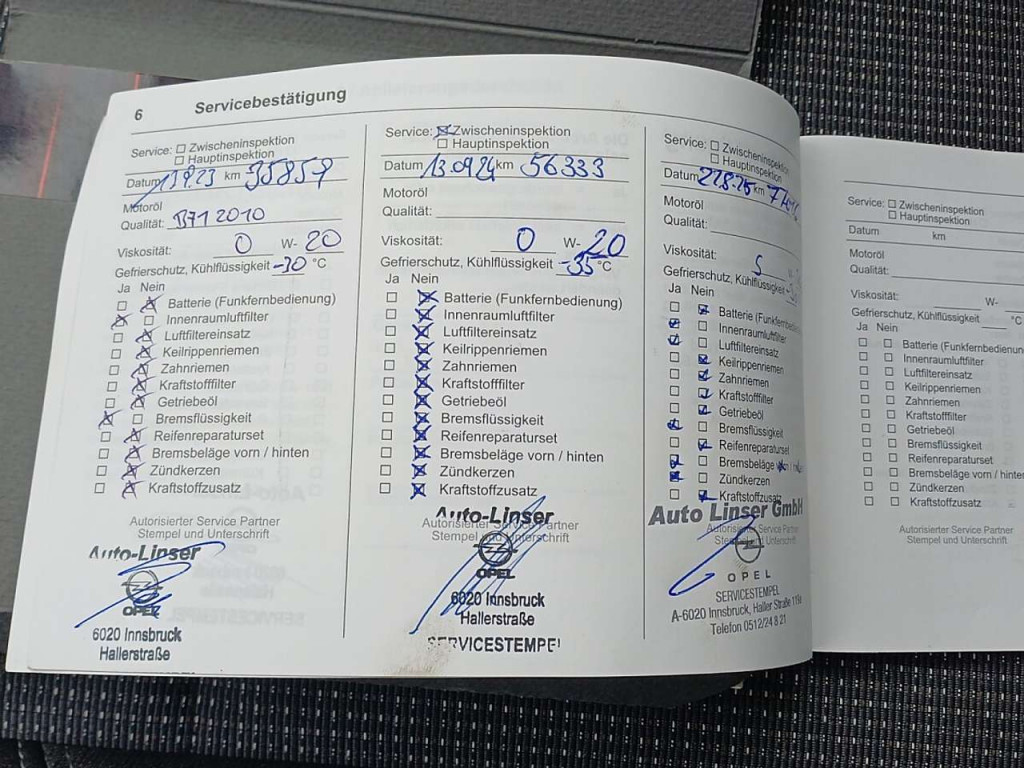 6 Servicebestätigung
Service: ☐ Zwischeninspektion
☐ Hauptinspektion
Datum 13.9.23 km 35857
Motoröl
Qualität: B71 2010
Viskosität: 0 W- 20
Gefrierschutz, Kühlflüssigkeit -30 °C
Ja Nein
☐ ☒ Batterie (Funkfernbedienung)
☒ ☐ Innenraumluftfilter
☐ ☒ Luftfiltereinsatz
☐ ☒ Keilrippenriemen
☐ ☒ Zahnriemen
☐ ☒ Kraftstofffilter
☐ ☒ Getriebeöl
☒ ☐ Bremsflüssigkeit
☐ ☒ Reifenreparaturset
☐ ☒ Bremsbeläge vorn / hinten
☐ ☒ Zündkerzen
☐ ☒ Kraftstoffzusatz
Autorisierter Service Partner
Stempel und Unterschrift
Auto-Linser
OPEL
6020 Innsbruck
Hallerstraße
Service: ☒ Zwischeninspektion
☐ Hauptinspektion
Datum 13.09.24 km 56333
Motoröl
Qualität:
Viskosität: 0 W- 20
Gefrierschutz, Kühlflüssigkeit -35 °C
Ja Nein
☐ ☒ Batterie (Funkfernbedienung)
☐ ☒ Innenraumluftfilter
☐ ☒ Luftfiltereinsatz
☐ ☒ Keilrippenriemen
☐ ☒ Zahnriemen
☐ ☒ Kraftstofffilter
☐ ☒ Getriebeöl
☐ ☒ Bremsflüssigkeit
☐ ☒ Reifenreparaturset
☐ ☒ Bremsbeläge vorn / hinten
☐ ☒ Zündkerzen
☐ ☒ Kraftstoffzusatz
Auto-Linser
Autorisierter Service Partner
Stempel und Unterschrift
OPEL
6020 Innsbruck
Hallerstraße
SERVICESTEMPEL
Service: ☐ Zwischeninspektion
☐ Hauptinspektion
Datum 22.8.25 km
Motoröl
Qualität:
Viskosität: 5
Gefrierschutz, Kühlflüssigkeit
Ja Nein
☐ ☒ Batterie
☒ ☐ Innenraumluftfilter
☒ ☐ Luftfiltereinsatz
☐ ☒ Keilrippenriemen
☐ ☒ Zahnriemen
☐ ☒ Kraftstofffilter
☐ ☒ Getriebeöl
☒ ☐ Bremsflüssigkeit
☐ ☒ Reifenreparaturset
☒ ☐ Bremsbeläge
☒ ☐ Zündkerzen
☐ ☒ Kraftstoffzusatz
Auto Linser GmbH
Autorisierter Service Partner
Stempel und Unterschrift
OPEL
SERVICESTEMPEL
A-6020 Innsbruck, Haller Straße
Telefon 0512/24 8 21
Service: ☐ Zwischeninspektion
☐ Hauptinspektion
Datum km
Motoröl
Qualität:
Viskosität: W-
Gefrierschutz, Kühlflüssigkeit °C
Ja Nein
☐ ☐ Batterie (Funkfernbedienun
☐ ☐ Innenraumluftfilter
☐ ☐ Luftfiltereinsatz
☐ ☐ Keilrippenriemen
☐ ☐ Zahnriemen
☐ ☐ Kraftstofffilter
☐ ☐ Getriebeöl
☐ ☐ Bremsflüssigkeit
☐ ☐ Reifenreparaturset
☐ ☐ Bremsbeläge vorn / hinten
☐ ☐ Zündkerzen
☐ ☐ Kraftstoffzusatz
Autorisierter Service Partner
Stempel und Unterschrift